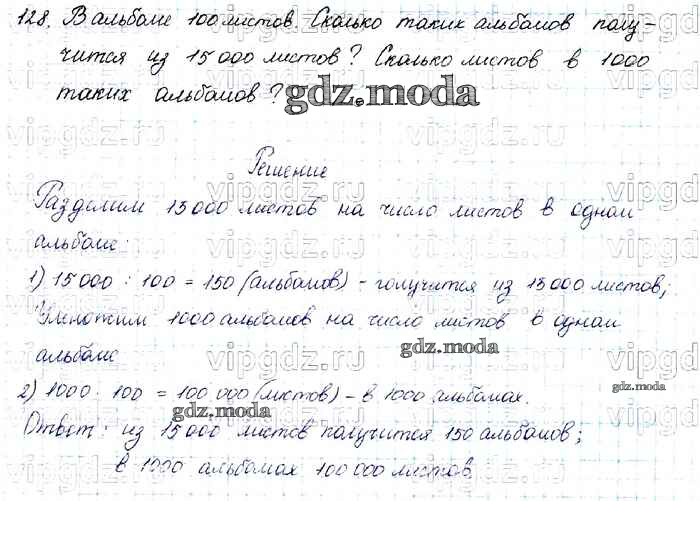 128. В альбоме 100 листов. Сколько таких альбомов полу-
чится из 15 000 листов? Сколько листов в 1000
таких альбомов?
gdz.moda
Решение
Разделим 15 000 листов на число листов в одном
альбоме:
1) 15 000 : 100 = 150 (альбомов) - получится из 15 000 листов;
Умножим 1000 альбомов на число листов в одном
альбоме
gdz.moda
2) 1000 · 100 = 100 000 (листов) - в 1000 альбомах.
gdz.moda
gdz.moda
Ответ: из 15 000 листов получится 150 альбомов;
в 1000 альбомах 100 000 листов.
vipgdz.ru